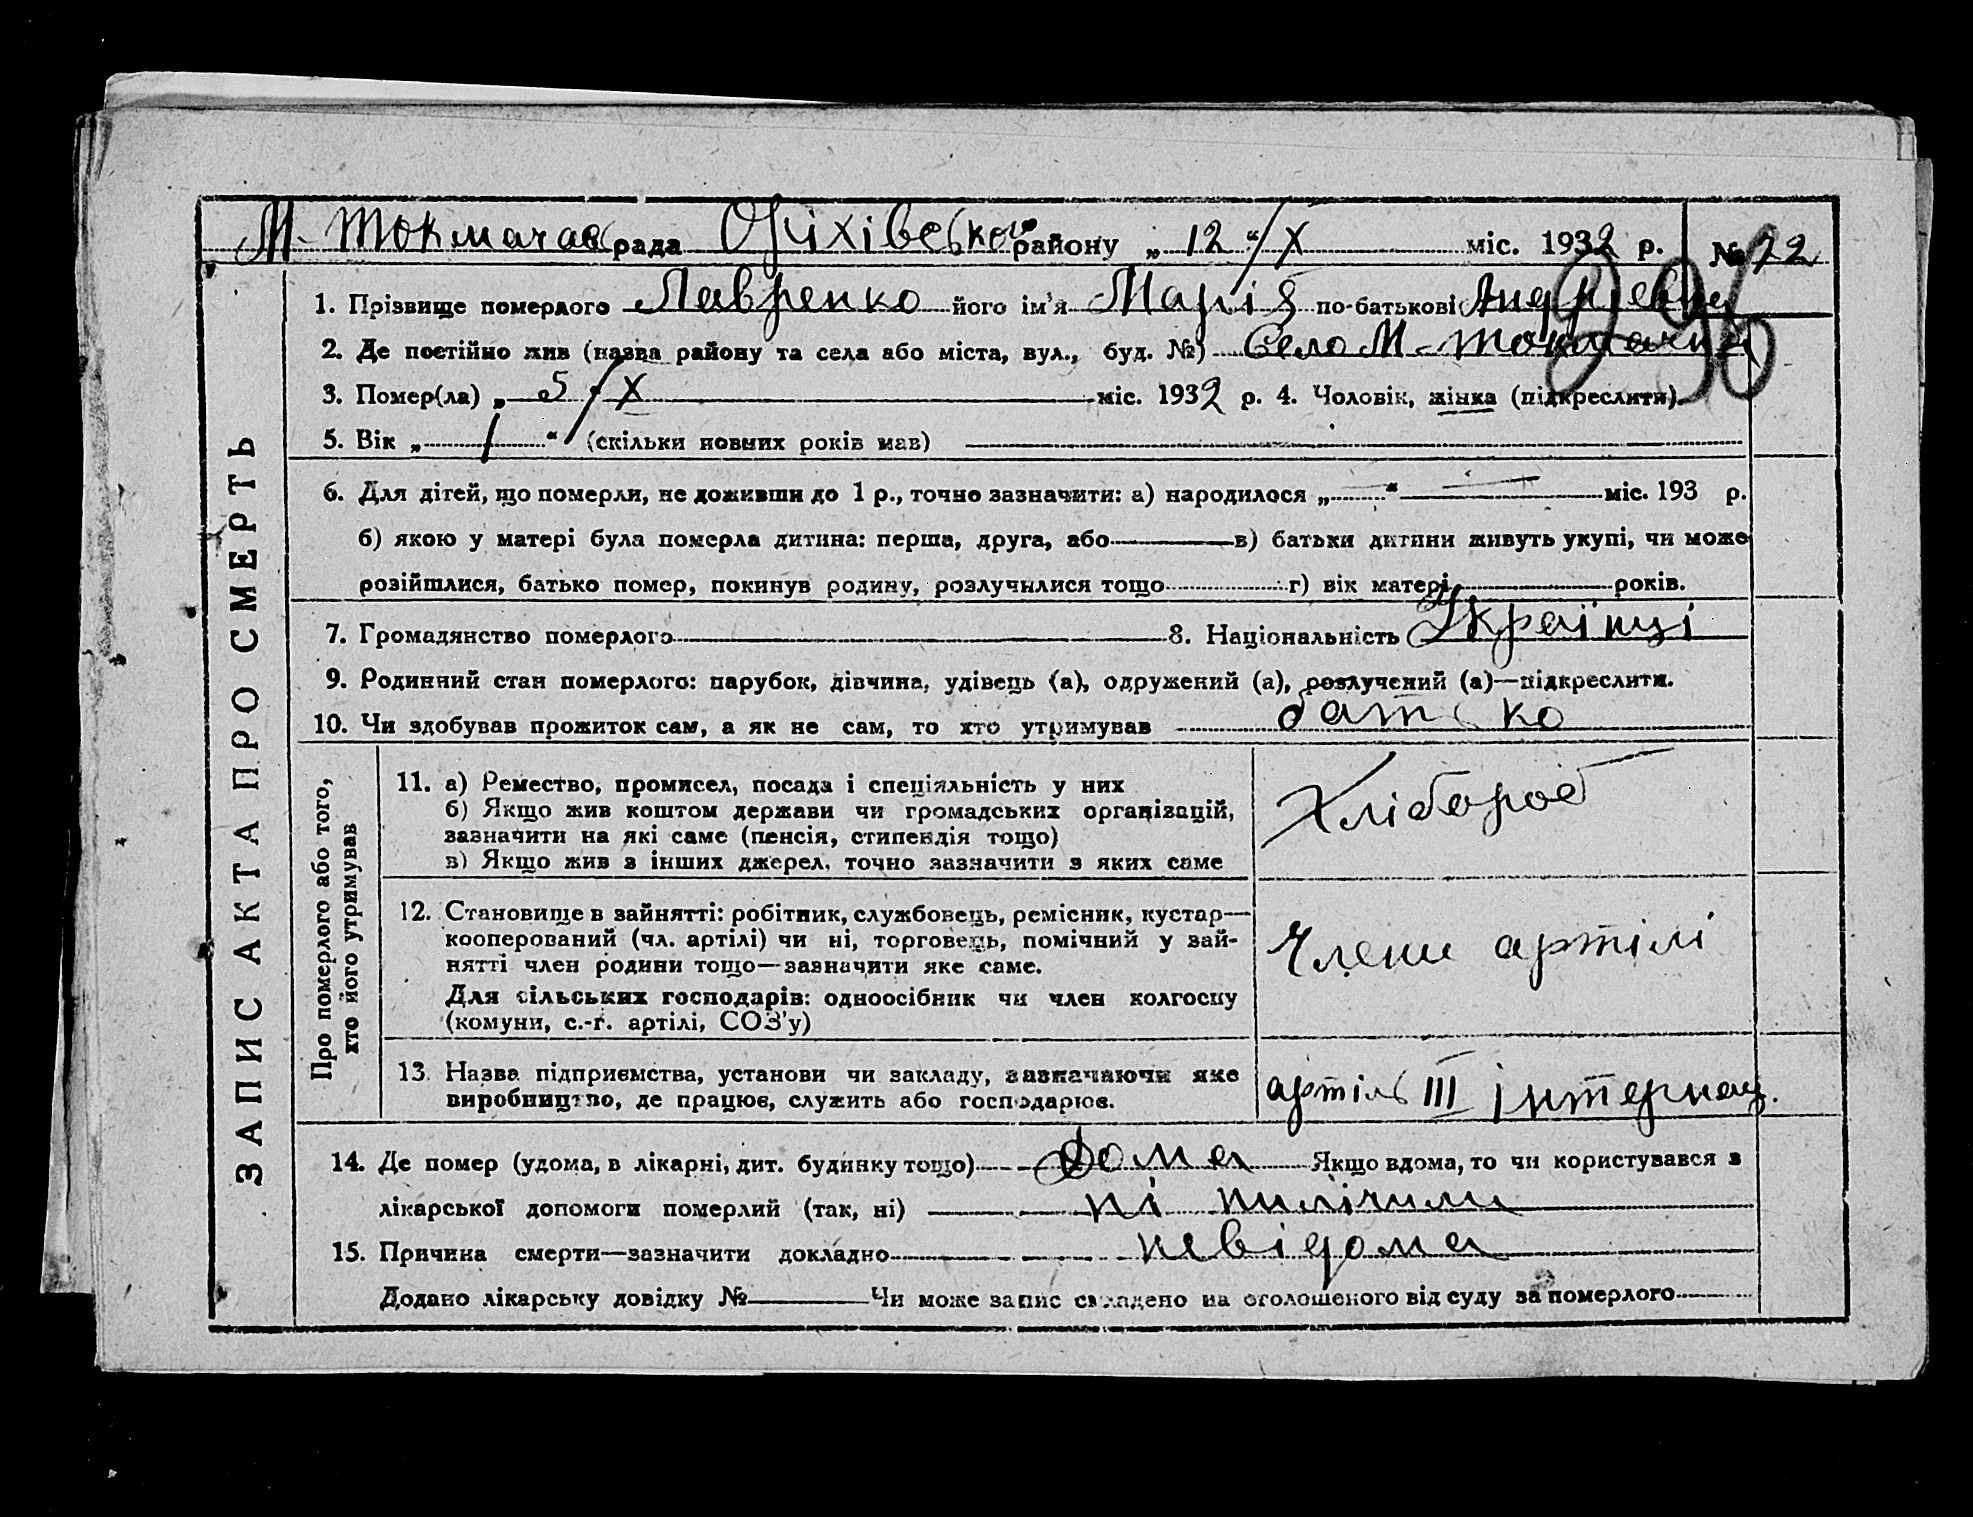 М-Токмачас рада Оріхівської району „ 12 “/X міс. 1932 р. № 72
296
1. Прізвище померлого Лавренко його ім’я Марія по-батькові Андріевна
2. Де постійно жив (назва району та села або міста, вул., буд. №) Село М-Токмачка
3. Помер(ла) „ 5 “/X міс. 1932 р. 4. Чоловік, жінка (підкреслити).
5. Вік „ 1 “ (скільки повних років мав)
6. Для дітей, що померли, не доживши до 1 р., точно зазначити: а) народилося „ “ міс. 193 р.
б) якою у матері була померла дитина: перша, друга, або в) батьки дитини живуть укупі, чи може
розійшлися, батько помер, покинув родину, розлучилися тощо г) вік матері років.
7. Громадянство померлого 8. Національність Українці
9. Родинний стан померлого: парубок, дівчина, удівець (а), одружений (а), розлучений (а)—підкреслити.
10. Чи здобував прожиток сам, а як не сам, то хто утримував батько
ЗАПИС АКТА ПРО СМЕРТЬ
Про померлого або того,
хто його утримував
11. а) Ремество, промисел, посада і спеціяльність у них
б) Якщо жив коштом держави чи громадських організацій,
зазначити на які саме (пенсія, стипендія тощо)
в) Якщо жив з інших джерел, точно зазначити з яких саме
Хлібороб
12. Становище в зайнятті: робітник, службовець, ремісник, кустар—
кооперований (чл. артілі) чи ні, торговець, помічний у зай-
нятті член родини тощо—зазначити яке саме.
Для сільських господарів: одноосібник чи член колгоспу
(комуни, с.-г. артілі, СОЗ’у)
Члени артілі
13. Назва підприємства, установи чи закладу, зазначаючи яке
виробництво, де працює, служить або господарює.
артіль III інтернац.
14. Де помер (удома, в лікарні, дит. будинку тощо) Дома Якщо вдома, то чи користувався з
лікарської допомоги померлий (так, ні) ні
15. Причина смерти—зазначити докладно невідома
Додано лікарську довідку № Чи може запис складено на оголошеного від суду за померлого